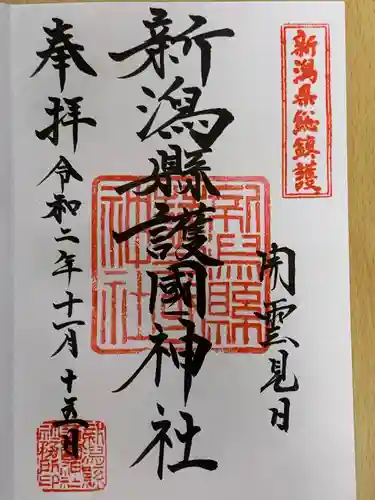 新潟県総鎮護
開雲見日
新潟縣護國神社
奉拝
令和二年十一月十五日
新潟縣護國神社
新潟縣護國神社社務所印